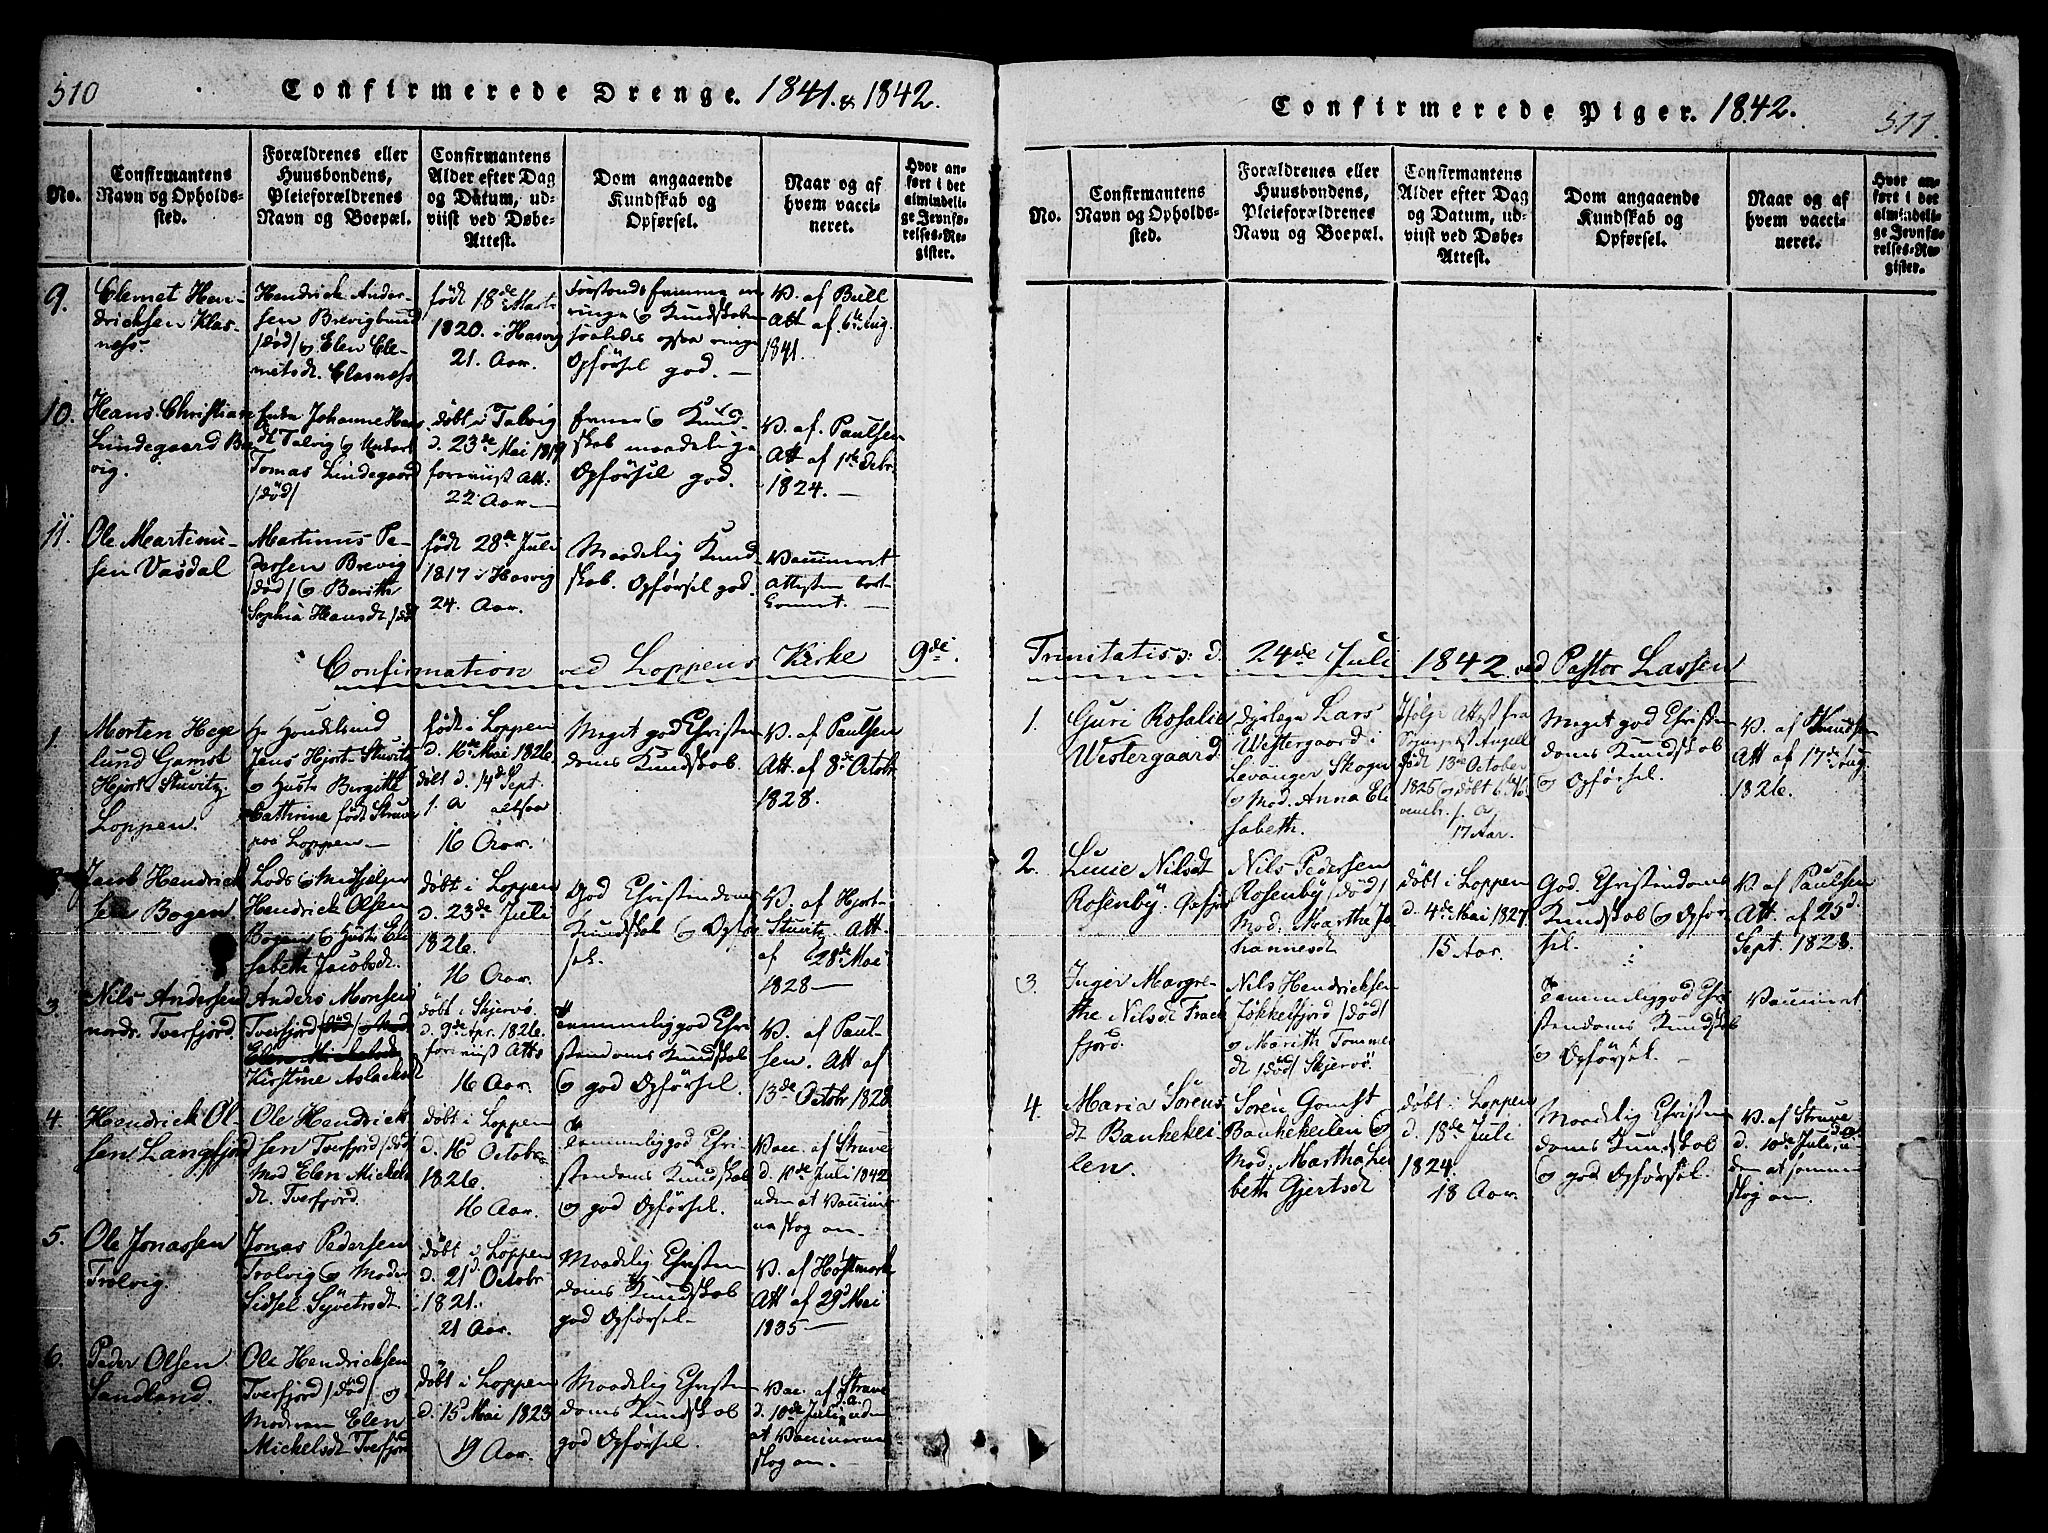 510 Confirmerede Drenge. 1841. & 1842.
No.
Confirmantens
Navn og Opholds-
sted.
Forældrenes eller
Huusbondens,
Pleieforældrenes
Navn og Boepæl.
Confirmantens
Alder efter Dag
og Datum, ud-
viist ved Døbe-
Attest.
Dom angaaende
Kundskab og
Opførsel.
Naar og af
hvem vacci-
neret.
Hvor an-
ført i det
almindeli-
ge Jevnfø-
relses-Re-
gister.
9.
Clemet Hen-
dricksen Klas-
ness.
Hendrick Ander-
sen Brevigbund
/død/ og Elen Cle-
metsdt. Clasness
født 18de Marts
1820. i Hasvig
21. Aar.
ringe og Kundskaben
saaledes ogsaa ringe
Opførsel god. —
V. af Bull
Att af 6te Aug.
1841.
10.
Hans Christian
Lindegaard Bre
vig.
Johanne Hans
dt Talvig og
Tomas Lindegaard
/død/
døbt i Talvig
d. 23de Mai 1819
foreviist Att:
22 Aar—
og Kund-
skab maadelig
Opførsel god.
V. af. Paulsen
Att af 1ste Debr.
1824. —
11.
Ole Martinu-
sen Vasdal
Martinus Pe-
dersen Brevig
/død/ og Berith
Sophia Hansdt /død
født 28de Juli
1817 i Hasvig
24. Aar.
Maadelig Kund
skab. Opførsel god.
Vaccineret
Attesten bort-
kommet. —
Confirmation ved Loppens Kirke 9de
1.
Morten Hege
lund Gamst
Hjort Stuvitz.
Loppen.
Hr Handelsmd
Jens Hjort Stuvitz
og Hustr Birgitte
Cathrine født Struve
paa Loppen—
født i Loppen
d. 16de Mai 1826
døbt d. 14d Sept.
s. a altsaa
16 Aar.
Meget god Christen
doms Kundskab.
V. af Paulsen
Att. af 8de Octobr
1828.
Jacob Hendrick
sen Bogen
Lods og Medhjelper
Hendrick Olsen
Bogen og Hustr Eli
sabeth Jacobsdt.
døbt i Loppen
d. 23de Juli
1826.
16 Aar.
God Christendoms
Kundskab og Opfør
sel.
V. af Hjort-
Stuvitz Att.
af 28de Mai
1828—
3.
Nils Andersen
nordr. Tverfjord.
Anders Monsen
Tverfjord /død/
Elen Mickelsdt
Kirstine Aslacksdt
døbt i Skjervø
d. 9de Apr. 1826.
foreviist Atts
16 Aar.
Temmelig god Chri
stendoms Kundskab
og god Opførsel.
V. af Paul-
sen. Att af
13de Octobr 1828
4.
Hendrick Ol-
sen Langfjord
Ole Hendrick
sen Tverfjord /død/
Mod Elen Mickels
dt. Tverfjord.
døbt i Loppen
d. 16 October
1826.
16 Aar.
Temmelig god Chri-
stendoms Kundskab
og god Opførsel.
Vac. af Struve
d. 10de Juli 1842
uden at Vaccini-
na slog an.
5.
Ole Jonassen
Trolvig.
Jonas Pedersen
Trolvig og Moder
Sidsel Syvertsdt.
døbt i Loppen
d. 21d Octobr
1821.
21 Aar.
Maadelig Christen
doms Kundskab
god Opførsel.
V. af Høstmark
Att af 29d Mai
1835—
6.
Peder Olsen
Sandland.
Ole Hendricksen
Tverfjord /død/ og
Moderen Elen
Mickelsdt Tverfjord
døbt i Loppen
d. 15 Mai 1823
19 Aar.
Maadelig Christen
doms Kundskab
god Opførsel.
Vac. af Struve
d. 10de Juli d.A. uden
at Vaccinerne
slog an.
Confirmerede Piger. 1842. 511.
No.
Confirmantens
Navn og Opholds-
sted.
Forældrenes eller
Huusbondens,
Pleieforældrenes
Navn og Boepæl.
Confirmantens
Alder efter Dag
og Datum, ud-
viist ved Døbe-
Attest.
Dom angaaende
Kundskab og
Opførsel.
Naar og af
hvem vacci-
neret.
Hvor an-
ført i det
almindeli-
ge Jevnfø-
relses-Re-
gister.
Trinitatis: d. 24de Juli 1842 ved Pastor Lassen
1.
Guri Rosalie
Westergaard
Lars
Westergaard i
Levanger Skogn
og Mod. Anna Eli
sabeth.
Ifølge Attest fra
Sogneprest Angell
født 13de October
1825 og døbt 6te No
venbr. s. a
17 Aar.
Meget god Christen
doms Kundskab
og Opførsel.
V. af Knudsen
Att af 17de Aug.
1826.
2.
Lucie Nilsdt
Rosenby.
Nils Pedersen
Rosenby /død/
Mod. Marthe Jo
hannesdt
døbt i Loppen
d. 4de Mai 1827
15 Aar.
God. Christendoms
Kundskab og Opfør
sel.
V. af Paulsen
Att. af 25d
Sept. 1828.
3.
Inger Margre-
the Nilsdt Frack
fjord.
Nils Hendricksen
Jøkkelfjord /død/
og Marith Tomme
dt /død/ Skjervø.
Temmelig god Chri
stendoms Kundskab
og Opførsel. —
Vaccineret
4.
Maria Sørens
dt Bankekei
len.
Søren Gamst
Bankekeilen og
Mod. Martha Li
beth Gjertsdt
døbt i Loppen
d. 18de Juli
1824.
18 Aar.
Maadelig Christen
doms Kundskab
og god Opførsel.
V. af Struve
d. 10de Juli d.a. u-
den at samme
slog an.